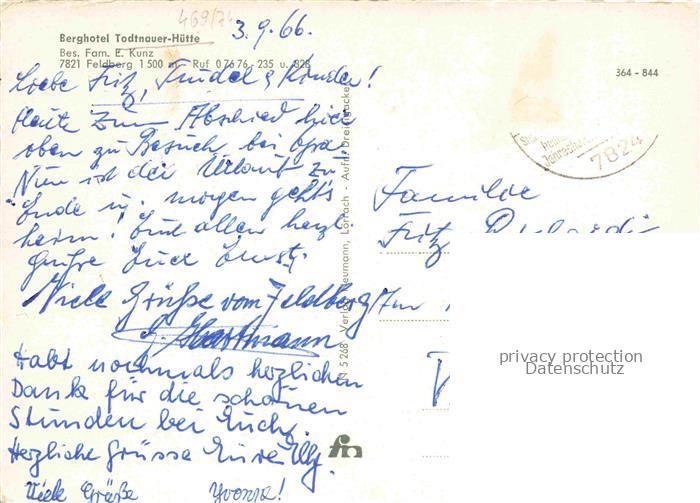 469/74
3.9.66.
Berghotel Todtnauer-Hütte
Bes. Fam. E. Kunz
7821 Feldberg 1500 m · Ruf 07676 - 235 u. 328
364 - 844
Liebe Fritz, Trudel & Kinder!
Heute zum Abschied hier
oben zu Besuch bei Opa.
Nun ist der Urlaub zu
Ende u. morgen geht's
heim! Euch allen herzl.
Grüße Euer Ernst.
Viele Grüße vom Feldberg
Hartmann
Habt nochmals herzlichen
Dank für die schönen
Stunden bei Euch.
Herzliche Grüsse Eure Elly.
Viele Grüße Yvonne!
Verlag Neumann, Lörrach - Aufn.
5268
fn
7824
Familie
Fritz
privacy protection
Datenschutz